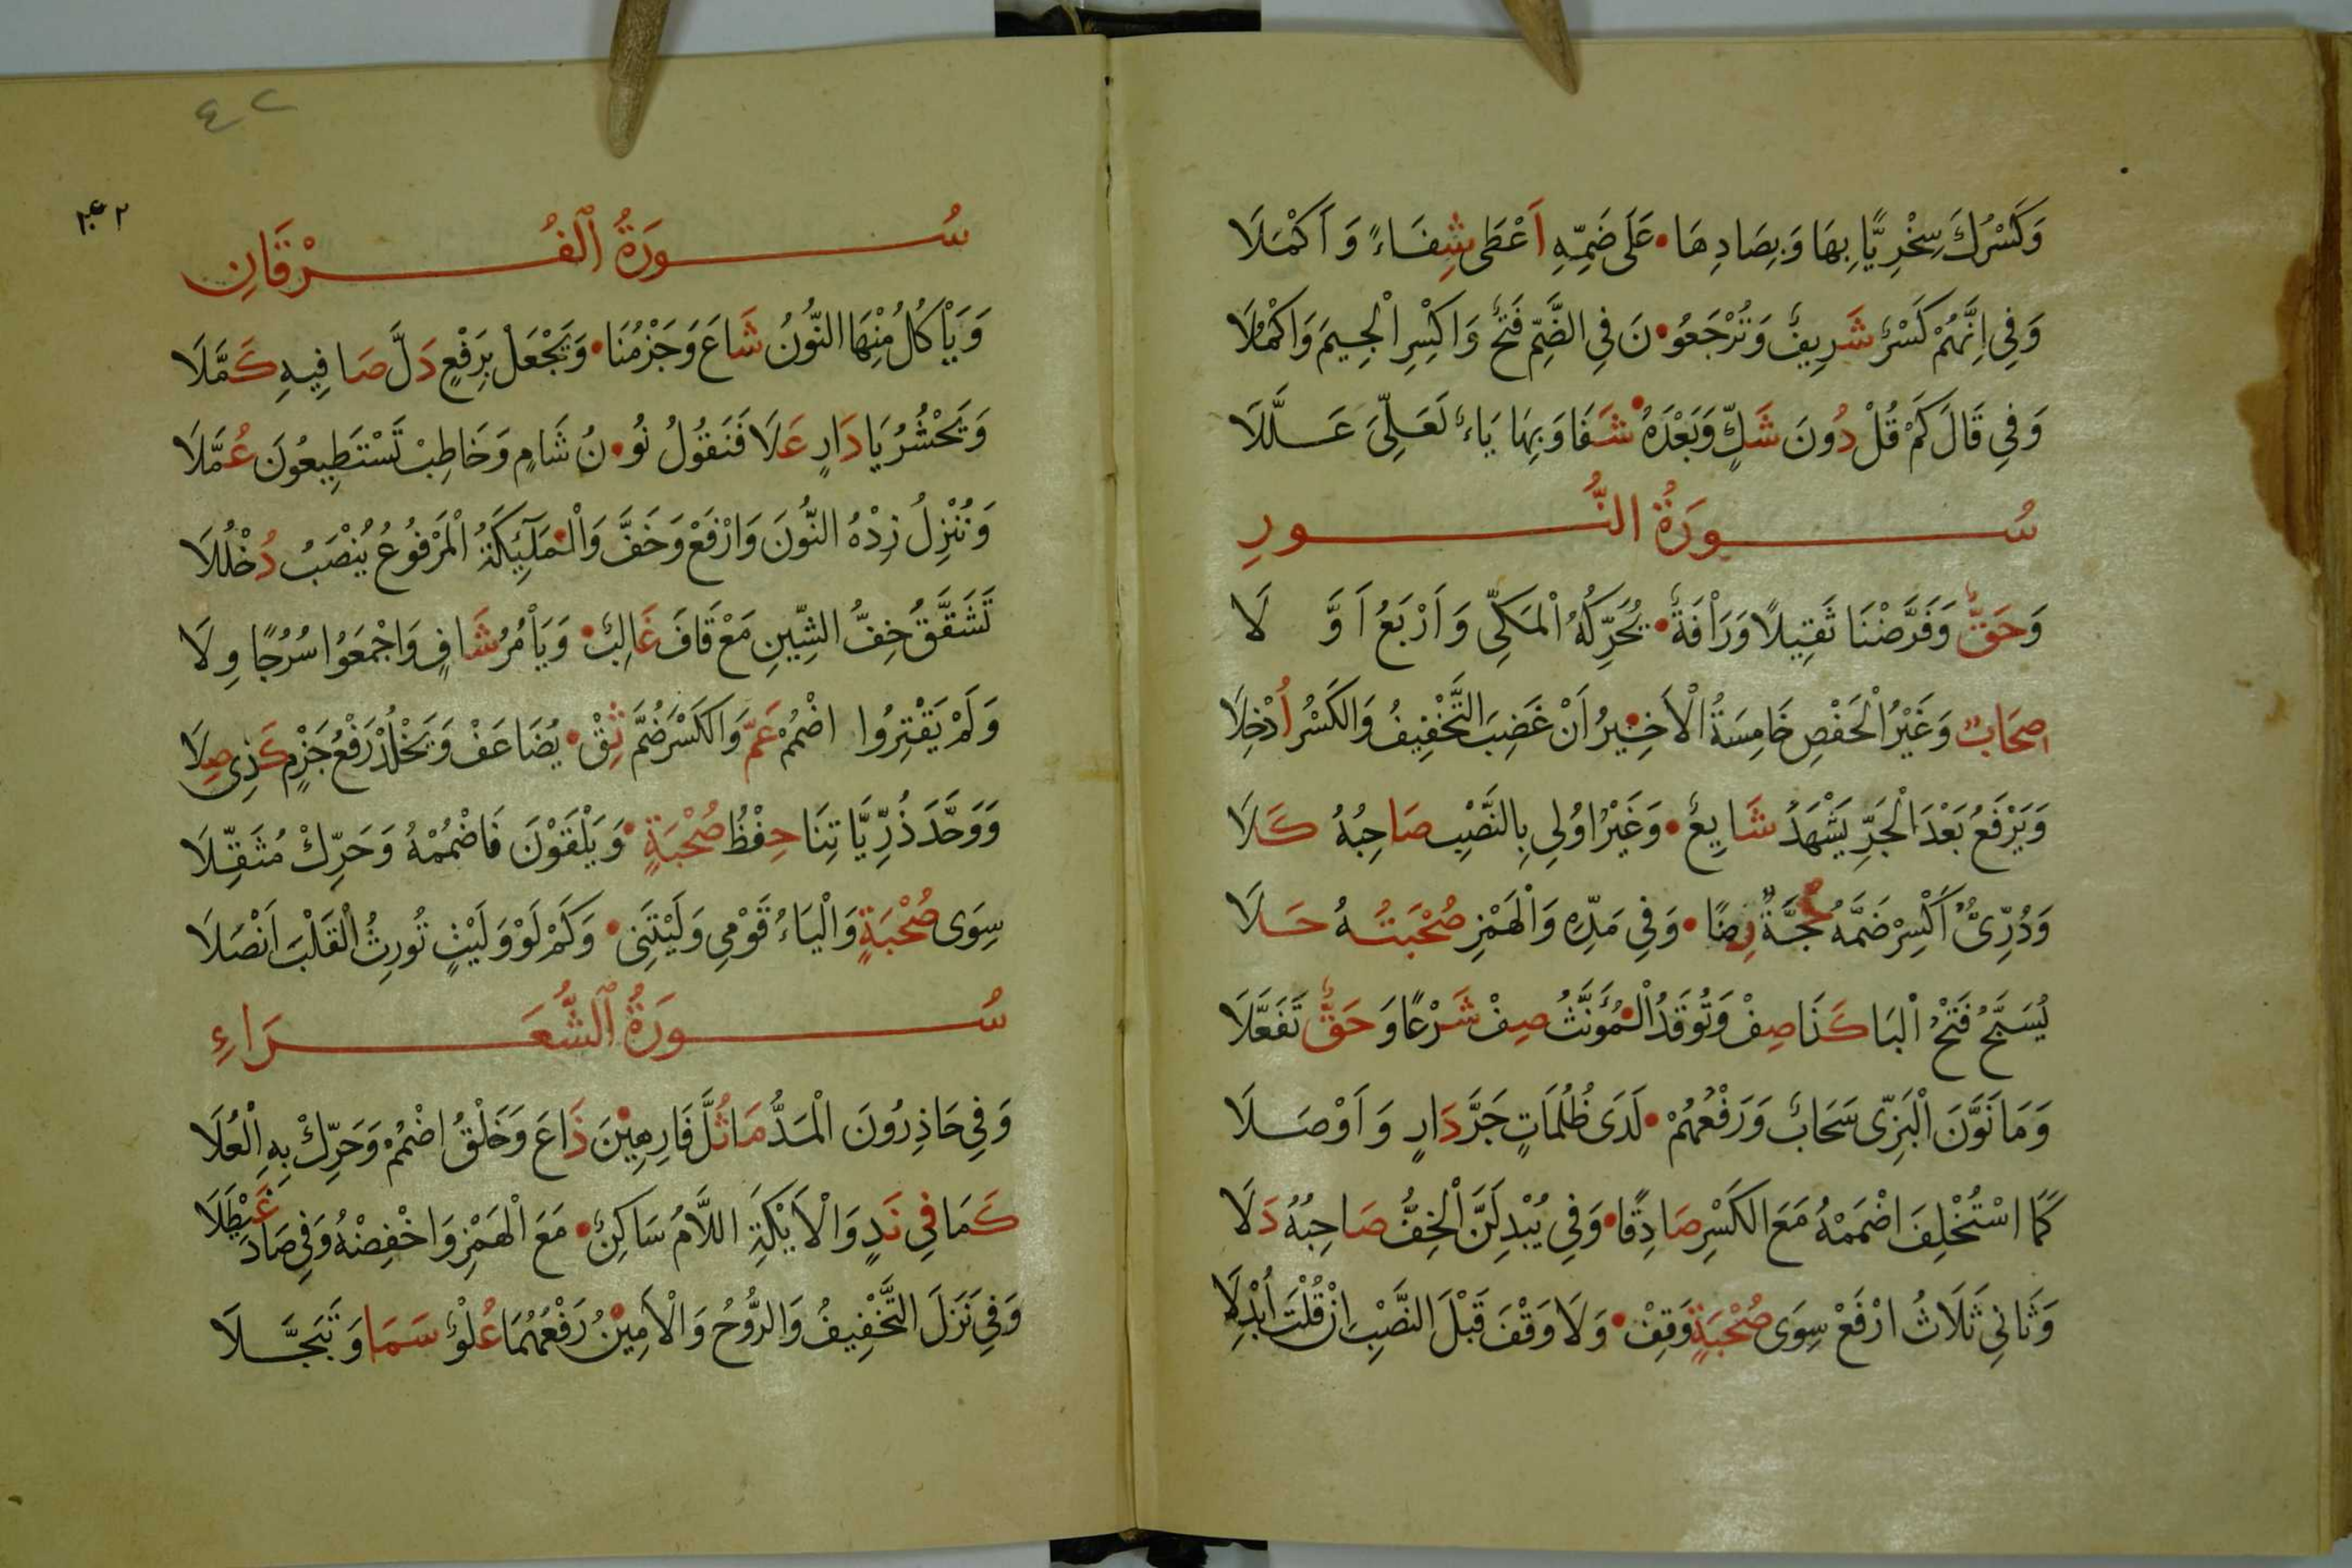 وَكَسْرُكَ سِخْرِيًّا بِهَا وَبِصَادِهَا • عَلَى ضَمِّهِ اَعْطَى شِفَاءً وَ اَكْمَلَا
وَفِى اِنَّهُمْ كَسْرٌ شَرِيفٌ وَتُرْجَعُو • نَ فِى الضَّمِّ فَتْحٌ وَاكْسِرِ الْجِيمَ وَاكْمُلَا
وَفِى قَالَ كَمْ قُلْ دُونَ شَكٍّ وَبَعْدَهُ • شَفَا وَبِهَا يَاءٌ لَعَلِّىَ عَلَّلَا
سُورَةُ النُّورِ
وَحَقٌّ وَفَرَّضْنَا ثَقِيلًا وَرَأْفَةٌ • يُحَرِّكُهُ الْمَكِّى وَ اَرْبَعُ اَ وَّ لَا
صِحَابٌ وَغَيْرُ الْحَفْصِ خَامِسَةُ الْاَخِيرُ • اَنْ غَضِبَ التَّخْفِيفُ وَالكَسْرُ اُدْخِلَا
وَيَرْفَعُ بَعْدَ الْجَرِّ يَشْهَدُ شَايِعٌ • وَغَيْرُ اوُلِى بِالنَّصْبِ صَاحِبُهُ كَلَا
وَدُرِّىٌّ اكْسِرْ ضَمَّهُ حُجَّةً رِضًا • وَفِى مَدِّهِ وَالْهَمْزِ صُحْبَتُهُ حَلَا
يُسَبِّحُ فَتْحُ الْبَا كَذَا صِفْ وَتُوقَدُ الْـ • مُؤَنَّثُ صِفْ شَرْعًا وَ حَقٌّ تَفَعَّلَا
وَمَا نَوَّنَ الْبَزِّى سَحَابٌ وَرَفْعُهُمْ • لَدَى ظُلُمَاتٍ جَرَّ دَارٍ وَ اَوْصَلَا
كَمَا اسْتُخْلِفَ اضْمُمْهُ مَعَ الكَسْرِ صَادِقًا • وَفِى يُبْدِلَنَّ الْخِفُّ صَاحِبُهُ دَلَا
وَثَانِى ثَلَاثُ ارْفَعْ سِوَى صُحْبَةٍ وَقِفْ • وَلَا وَقْفَ قَبْلَ النَّصْبِ اِنْ قُلْتَ اُبْدِلَا
٤٢
سُورَةُ الْفُرْقَانِ
وَيَأْكُلُ مِنْهَا النُّونُ شَاعَ وَجَزْمُنَا • وَيَجْعَلْ بِرَفْعٍ دَلَّ صَافِيهِ كَمَّلَا
وَنَحْشُرُ يَا دَارٍ عَلَا فَنَقُولُ نُو • نُ شَامٍ وَخَاطِبْ تَسْتَطِيعُونَ عُمَّلَا
وَنُنْزِلُ زِدْهُ النُّونَ وَارْفَعْ وَخَفَّ وَالْـ • مَلَئِكَةُ الْمَرْفُوعُ يُنْصَبُ دُخْلُلَا
تَشَقَّقُ خِفُّ الشِّينِ مَعْ قَافَ غَالِبٌ • وَيَأْمُرُ شَافٍ وَاجْمَعُوا سُرُجًا وِلَا
وَلَمْ يَقْتِرُوا اضْمُمْ عَمَّ وَالكَسْرَ ضُمَّ ثِقْ • يُضَاعَفْ وَيَخْلُدْ رَفْعُ جَزْمٍ كَذِى صِلَا
وَوَحَّدَ ذُرِّيَّاتِنَا حِفْظُ صُحْبَةٍ • وَيَلْقَوْنَ فَاضْمُمْهُ وَحَرِّكْ مُثَقِّلَا
سِوَى صُحْبَةٍ وَالْيَاءُ قَوْمِى وَلَيْتَنِى • وَكَمْ لَوْ وَلَيْتٍ تُورِثُ الْقَلْبَ اَنْصُلَا
سُورَةُ الشُّعَرَاءِ
وَفِى حَاذِرُونَ الْمَدُّ مَا ثُلَّ فَارِهِيْنَ • ذَاعَ وَخَلْقُ اضْمُمْ وَحَرِّكْ بِهِ الْعُلَا
كَمَا فِى نَدٍ وَالْاَيْكَةِ اللَّامُ سَاكِنٌ • مَعَ الْهَمْزِ وَاخْفِضْهُ وَفِى صَادَ غَيْطَلَا
وَفِى نَزَلَ التَّخْفِيفُ وَالرُّوحُ وَالْاَمِيْنُ • رَفْعُهُمَا عُلْوٌ سَمَا وَ تَبَجَّلَا